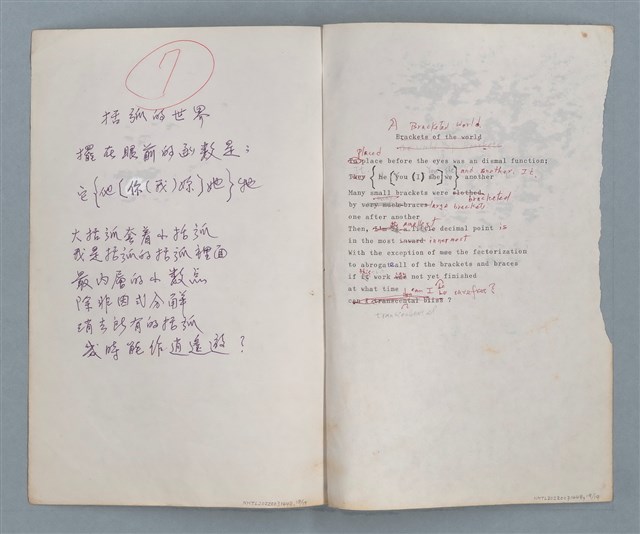 7
括弧的世界
擺在眼前的函數是：
它{他[你(我)妳]她}牠
大括弧套着小括弧
我是括弧的括弧裡面
最內層的小數点
除非因式分解
消去所有的括弧
幾時能作逍遙遊？
A Bracketed World
Brackets of the world
placed
In place before the eyes was an dismal function;
They { He [you (I) she] ve } another and another. It.
Many small brackets were clothed bracketed
by very much braces large brackets
one after another
Then, smallest little decimal point is
in the most inward innermost
With the exception of mem the factorization
to abrogat all of the brackets and braces
if work not yet finished
at what time can I be carefree?
transcendental